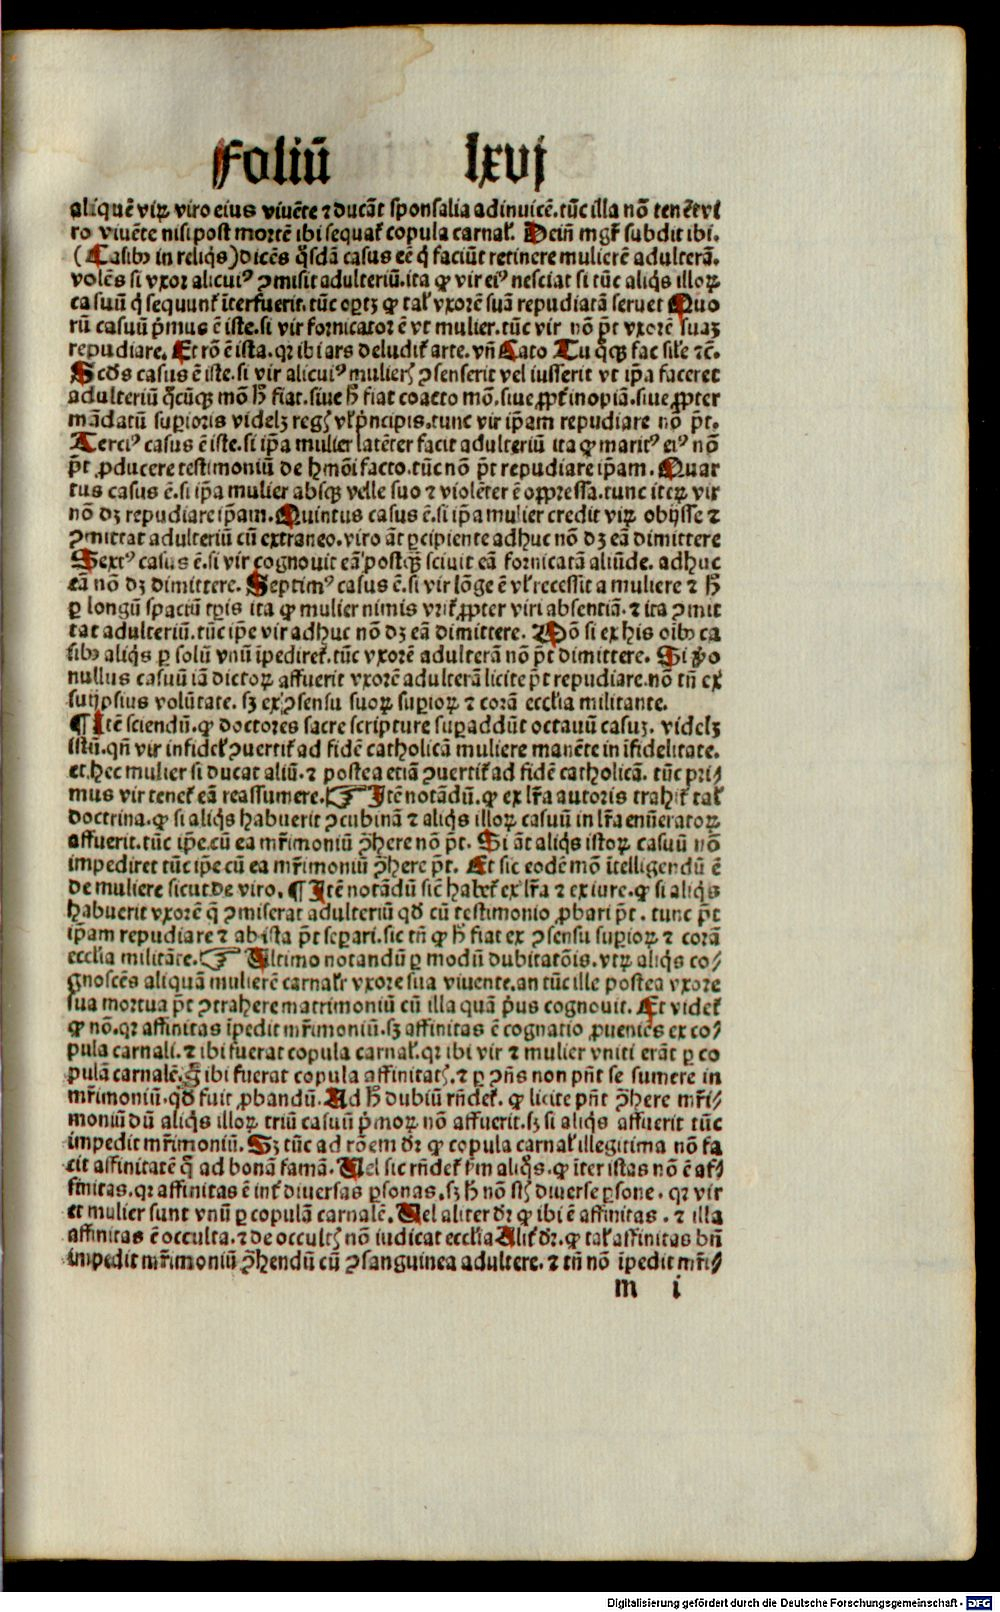 Foliū lxvj
aliquē viꝝ viro eius viuēte ⁊ ducāt sponsalia adinuicē. tūc illa nō tenet̄ vi
ro viuēte nisi post mortē ibi sequat̄ copula carnal̄. Dein̄ mgr̄ subdit ibi.
(Casibꝰ in reliq̇s) dicēs q̄sdā casus eē q̇ faciūt retinere mulierē adulterā.
volēs si vxor alicuiꝰ ꝯmisit adulteriū. ita ꝙ vir eiꝰ nesciat si tūc aliq̇s illoꝝ
casuū q̇ sequunt̄ īterfuerit. tūc oꝑtꝫ ꝙ tal̄ vxorē suā repudiatā seruet Quo
rū casuū ṗmus ē iste. si vir fornicator ē vt mulier. tūc vir nō pōt vxorē suaꝫ
repudiare. Et rō ē ista. qꝛ ibi ars deludit̄ arte. vn̄ Cato Tu q̄ꝙ fac sil̄e ⁊c̄.
Scd̄s casus ē iste. si vir alicuiꝰ mulieris ꝯsenserit vel iusserit vt ip̄a faceret
adulteriū q̄cūqꝫ mō h̄ fiat. siue h̄ fiat coacto mō. siue ꝓpt̄ inopiā. siue ꝓpter
mādatū suꝑioris videlꝫ regis vl̄ ṗncipis. tunc vir ip̄am repudiare nō pōt.
Terciꝰ casus ē iste. si ip̄a mulier latēter facit adulteriū ita ꝙ maritꝰ eiꝰ nō
pōt ꝓducere testimoniū de hmōi facto. tūc nō pōt repudiare ip̄am. Quar
tus casus ē. si ip̄a mulier absqꝫ velle suo ⁊ violēter ē oppressa. tunc iteꝝ vir
nō dꝫ repudiare ip̄am. Quintus casus ē. si ip̄a mulier credit viꝝ obijsse ⁊
ꝯmittat adulteriū cū extraneo. viro āt ꝑcipiente adhuc nō dꝫ eā dimittere
Sextꝰ casus ē. si vir cognouit eā postqꝫ sciuit eā fornicatā aliūde. adhuc
eā nō dꝫ dimittere. Septimꝰ casus ē. si vir lōge ē vl̄ recessit a muliere ⁊ h̄
ꝑ longū spaciū tꝑis ita ꝙ mulier nimis vrit̄ ꝓpter viri absentiā. ⁊ ita ꝯmit
tat adulteriū. tūc ip̄e vir adhuc nō dꝫ eā dimittere. Mō si ex his oībꝰ ca
sibꝰ aliq̇s ꝑ solū vnū īpediret̄. tūc vxorē adulterā nō pōt dimittere. Si ꝟo
nullus casuū iā dictoꝝ affuerit vxorē adulterā licite pōt repudiare. nō tn̄ ex
suijpsius volūtate. sꝫ ex ꝯsensu suoꝝ suꝑioꝝ ⁊ corā eccl̄ia militante.
¶ Itē sciendū. ꝙ doctores sacre scripture suꝑaddūt octauū casuꝫ. videlꝫ
istū. qn̄ vir infidel̄ ꝯuertit̄ ad fidē catholicā muliere manēte in īfidelitate.
et hec mulier si ducat aliū. ⁊ postea etiā ꝯuertit̄ ad fidē catholicā. tūc pri⸗
mus vir tenet̄ eā reassumere. ☞ Itē notādū. ꝙ ex lr̄a autoris trahit̄ tal̄
doctrina. ꝙ si aliq̇s habuerit ꝯcubinā ⁊ aliq̇s illoꝝ casuū in lr̄a enūeratoꝝ
affuerit. tūc ip̄e cū ea mr̄imoniū ꝯ̄here nō pōt. Si āt aliq̇s istoꝝ casuū nō
impediret tūc ip̄e cū ea mr̄imoniū ꝯ̄here pōt. Et sic eodē mō ītelligendū ē
de muliere sicut de viro. ¶ Itē notādū sic̄ habet̄ ex lr̄a ⁊ ex iure. ꝙ si aliq̇s
habuerit vxorē q̄ ꝯmiserat adulteriū qd̄ cū testimonio ꝓbari pōt. tunc pōt
ip̄am repudiare ⁊ ab ista pōt seꝑari. sic tn̄ ꝙ h̄ fiat ex ꝯsensu suꝑioꝝ ⁊ corā
eccl̄ia militāte. ☞ Ultimo notandū ꝑ modū dubitatōis. vtꝝ aliq̇s co⸗
gnoscēs aliquā mulierē carnal̄r vxore sua viuente. an tūc ille postea vxore
sua mortua pōt ꝯtrahere matrimoniū cū illa quā ṗus cognouit. Et videt̄
ꝙ nō. qꝛ affinitas īpedit mr̄imoniū. sꝫ affinitas ē cognatio ꝓueniēs ex co⸗
pula carnali. ⁊ ibi fuerat copula carnal̄. qꝛ ibi vir ⁊ mulier vniti erāt ꝑ co
pulā carnalē. g̊ ibi fuerat copula affinitatis. ⁊ ꝑ ꝯn̄s non pn̄t se sumere in
mr̄imoniū. qd̄ fuit ꝓbandū. Ad h̄ dubiū rn̄det̄. ꝙ licite pn̄t ꝯ̄here mr̄i⸗
moniū dū aliq̇s illoꝝ triū casuū ṗmoꝝ nō affuerit. sꝫ si aliq̇s affuerit tūc
impedit mr̄imoniū. Sꝫ tūc ad rōem dr̄ ꝙ copula carnal̄ illegitima nō fa
cit affinitatē q̄ ad bonā famā. Uel sic rn̄det̄ ẜm aliq̊s. ꝙ īter istas nō ē af⸗
finitas. qꝛ affinitas ē int̄ diuersas ꝑsonas. sꝫ h̄ nō st̄ diuerse ꝑsone. qꝛ vir
et mulier sunt vnū ꝑ copulā carnalē. Uel aliter dr̄ ꝙ ibi ē affinitas. ⁊ illa
affinitas ē occulta. ⁊ de occultis nō iudicat eccl̄ia Alit̄ dr̄. ꝙ tal̄ affinitas bn̄
impedit mr̄imoniū ꝯ̄hendū cū ꝯsanguinea adultere. ⁊ tn̄ nō īpedit mr̄i⸗
m i
Digitalisierung gefördert durch die Deutsche Forschungsgemeinschaft - DFG